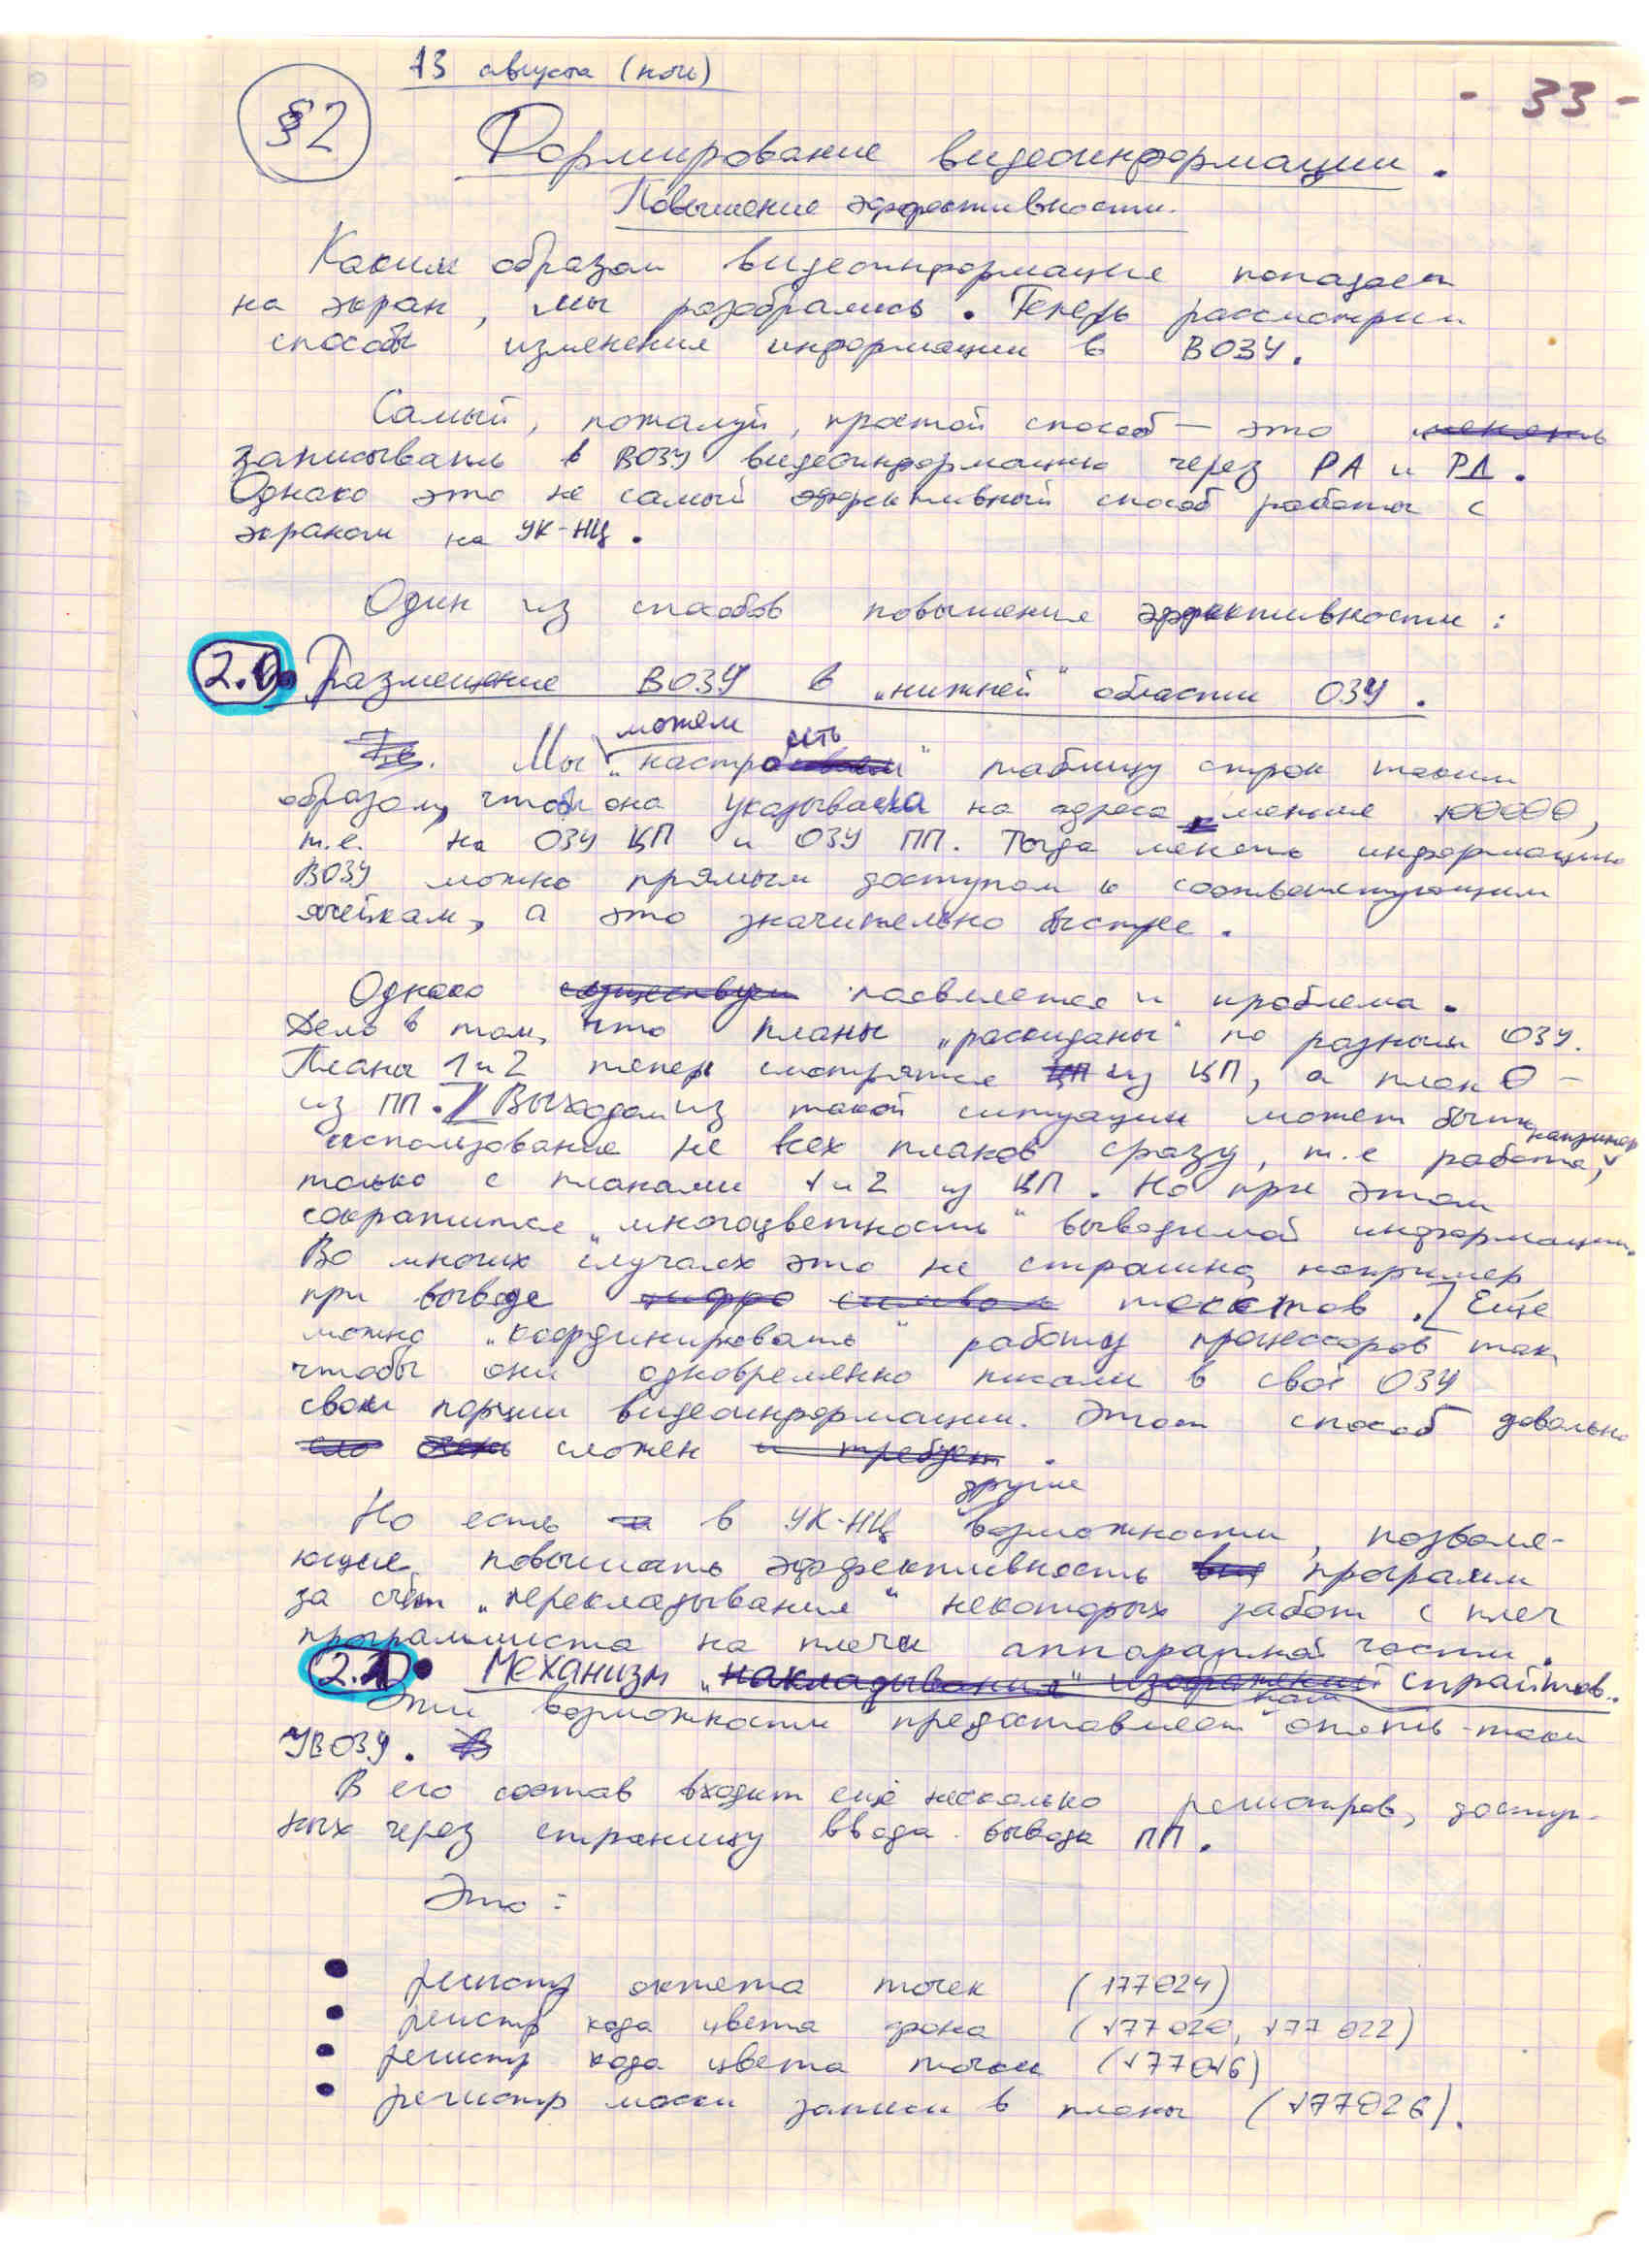 13 августа (ночь)
- 33 -
§2
Формирование видеоинформации.
Повышение эффективности.
Каким образом видеоинформация попадает
на экран, мы разобрались. Теперь рассмотрим
способы изменения информации в ВОЗУ.
Самый, пожалуй, простой способ — это менять
записывать в ВОЗУ видеоинформацию через РА и РД.
Однако это не самый эффективный способ работы с
экраном на УК-НЦ.
Один из способов повышения эффективности:
2.0. Размещение ВОЗУ в „нижней“ области ОЗУ.
Мы можем „настроить“ таблицу строк таким
образом, чтобы она указывала на адреса меньше 100000,
т.е. на ОЗУ ЦП и ОЗУ ПП. Тогда менять информацию
ВОЗУ можно прямым доступом к соответствующим
ячейкам, а это значительно быстрее.
Однако существует появляется и проблема.
Дело в том, что планы „раскиданы“ по разным ОЗУ.
Планы 1 и 2 теперь смотрятся ЦП из ЦП, а план 0 –
из ПП. [Выходом из такой ситуации может быть
использование не всех планов сразу, т.е работа, например
только с планами 1 и 2 из ЦП. Но при этом
сократится „многоцветность“ выводимой информации.
Во многих случаях это не страшно, например
при выводе символь текстов. [Ещё
можно „координировать“ работу процессоров так
чтобы они одновременно писали в своё ОЗУ
свои порции видеоинформации. Этот способ довольно
сло очень сложен и требует.
Но есть и в УК-НЦ другие возможности, позволя-
ющие повышать эффективность программ
за счёт „перекладывания“ некоторых забот с плеч
программиста на плечи аппаратной части.
2.1. Механизм „накладывания“ изображений спрайтов.
Эти возможности предоставляет нам опять-таки
УВОЗУ. В
В его состав входит ещё несколько регистров, доступ-
ных через страницу ввода-вывода ПП.
Это:
• регистр октета точек (177024)
• регистр кода цвета фона (177020, 177022)
• регистр кода цвета точки (177016)
• регистр маски записи в планы (177026).